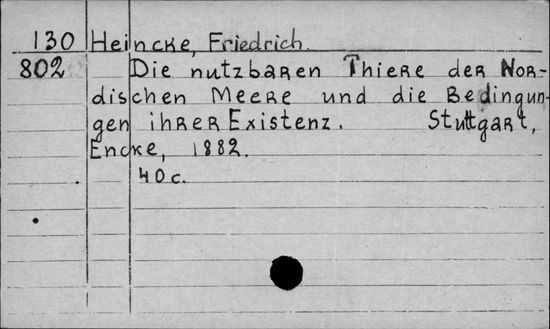 130 Heincke, Friedrich.
802 Die nutzbaren Thiere der Nor-
dischen Meere und die Bedingun-
gen ihrer Existenz. Stuttgart,
Encke, 1882.
40 c.